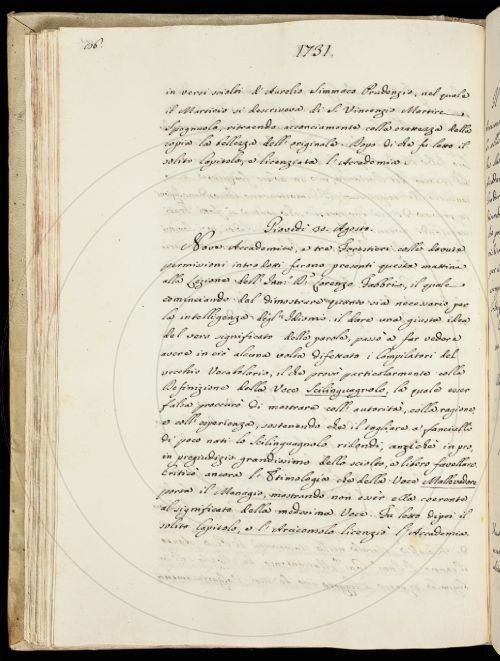 1731.
in versi sciolti d'Aurelio Simmaco Prudenzio, nel quale
il Martirio si descriveva di S. Vincenzio Martire
Spagnuolo, ritraendo acconciamente colla esattezza della
copia la bellezza dell'originale. Dopo di che fu letto il
solito Capitolo, e licenziata l'Accademia.
Giovedì 30. Agosto.
Nove Accademici, e tre Forestieri colle dovute
permissioni introdotti furono presenti questa mattina
alla Lezione dell' Dr. Lorenzo Fabbrio, il quale
cominciando dal dimostrare quanto sia necessario per
la intelligenza degl'Idiomi il dare una giusta idea
del vero significato delle parole, passò a far vedere
avere in ciò alcuna volta difettato i Compilatori del
vecchio Vocabolario, il che provò particolarmente colla
Definizione della Voce Scilinguagnolo, la quale esser
falsa proccurò di mostrare coll'autorità, colla ragione,
e coll'esperienza, sostenendo che il tagliare a' fanciulli
di poco nati lo Scilinguagnolo ridondi, anzichè in pro,
in pregiudizio grandissimo dello sciolto, e libero favellare.
Criticò ancora l'Etimologia che della Voce Mallevadore
porta il Menagio, mostrando non esser ella coerente
al significato della medesima Voce. Fu letto dipoi il
solito Capitolo, e l'Arciconsolo licenziò l'Accademia.